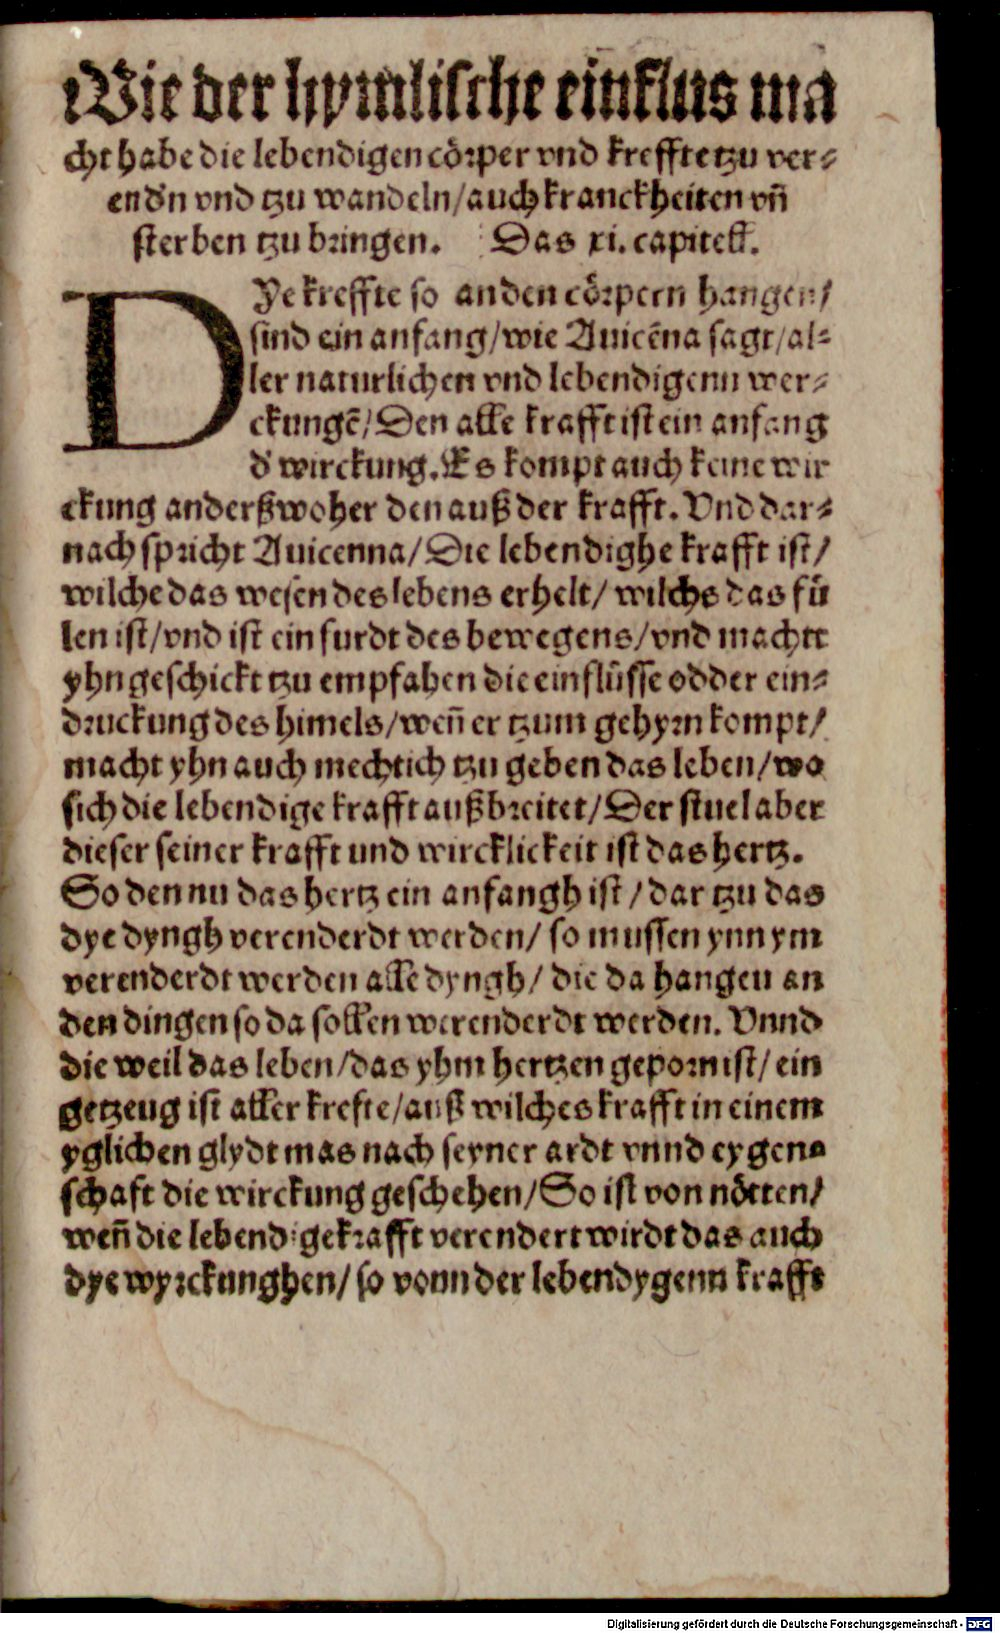 Wie der hymlische einflus ma
cht habe die lebendigen cörper vnd kreffte tzu ver⸗
end'n vnd tzu wandeln/auch kranckheiten vñ
sterben tzu bringen. Das xi. capitell.
DYe kreffte so an den cörpern hangen/
sind ein anfang/wie Auicēna sagt/al⸗
ler naturlichen vnd lebendigenn wer⸗
ckungē/Den alle krafft ist ein anfang
d' wirckung. Es kompt auch keine wir
ckung anderßwoher den auß der krafft. Vnd dar⸗
nach spricht Auicenna/Die lebendighe krafft ist/
wilche das wesen des lebens erhelt/ wilchs das fü
len ist/vnd ist ein furdt des bewegens/vnd machtt
yhn geschickt tzu empfahen die einflüsse odder ein⸗
druckung des himels/weñ er tzum gehyrn kompt/
macht yhn auch mechtich tzu geben das leben/wo
sich die lebendige krafft außbreitet/Der stuel aber
dieser seiner krafft und wircklickeit ist das hertz.
So den nu das hertz ein anfangh ist/dar tzu das
dye dyngh verenderdt werden/ so mussen ynn ym
verenderdt werden alle dyngh/ die da hangen an
den dingen so da sollen werenderdt werden. Vnnd
die weil das leben/das yhm hertzen geporn ist/ein
getzeug ist aller krefte/auß wilches krafft in einem
yglichen glydt mas nach seyner ardt vnnd eygen⸗
schaft die wirckung geschehen/So ist von nötten/
weñ die lebendige krafft verendert wirdt das auch
dye wyrckunghen/so vonn der lebendygenn krafft
Digitalisierung gefördert durch die Deutsche Forschungsgemeinschaft - DFG